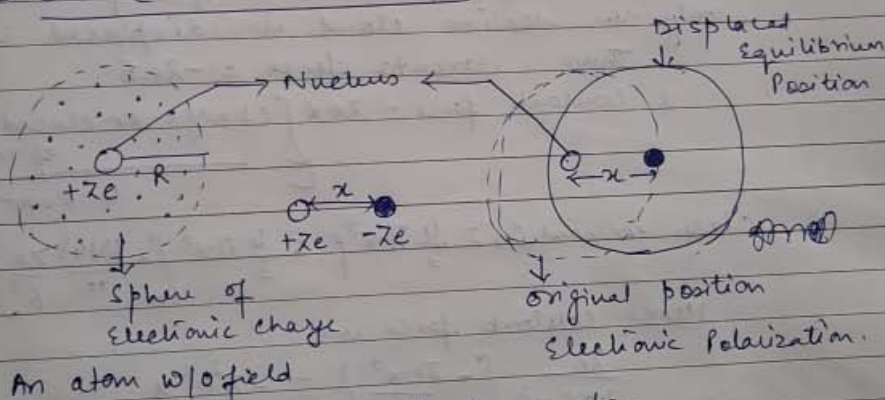 Displaced
Equilibrium
Position
Nucleus
+Ze
R
x
+Ze -Ze
x
Sphere of
Electronic charge
original position
Electronic Polarization.
An atom w/o field